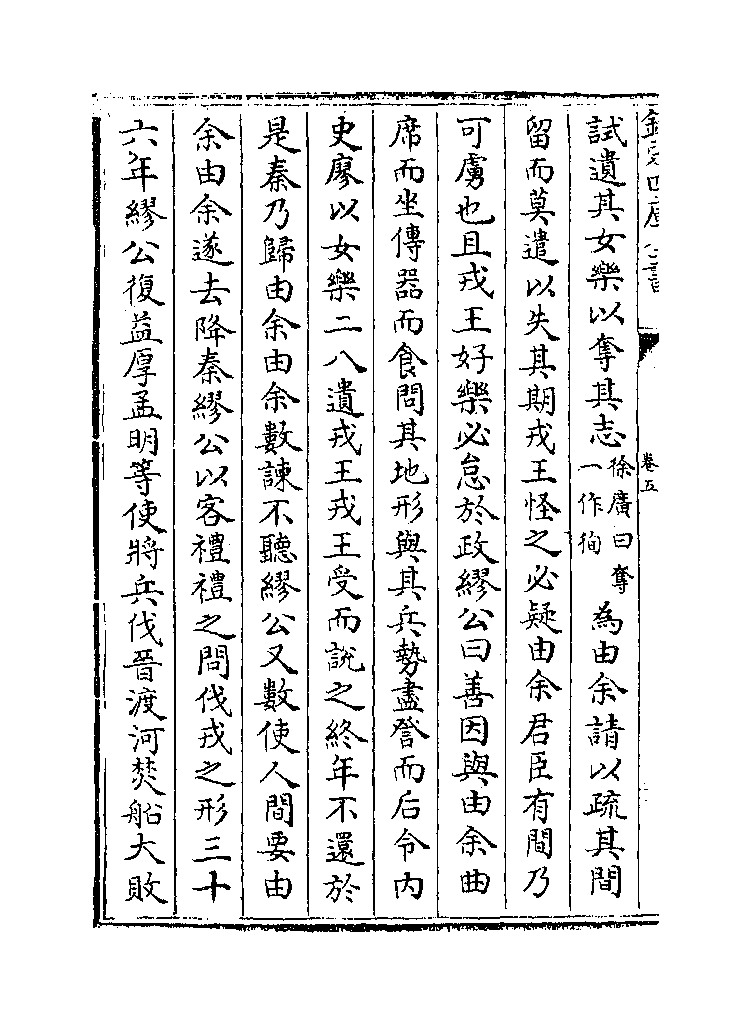 欽定四庫全書
卷五
試遺其女樂以奪其志徐廣曰奪一作徇為由余請以疏其間
留而莫遣以失其期戎王怪之必疑由余君臣有間乃
可虜也且戎王好樂必怠於政繆公曰善因與由余曲
席而坐傳器而食問其地形與其兵勢盡詧而后令內
史廖以女樂二八遺戎王戎王受而說之終年不還於
是秦乃歸由余由余數諫不聽繆公又數使人間要由
余由余遂去降秦繆公以客禮禮之問伐戎之形三十
六年繆公復益厚孟明等使將兵伐晉渡河焚船大敗